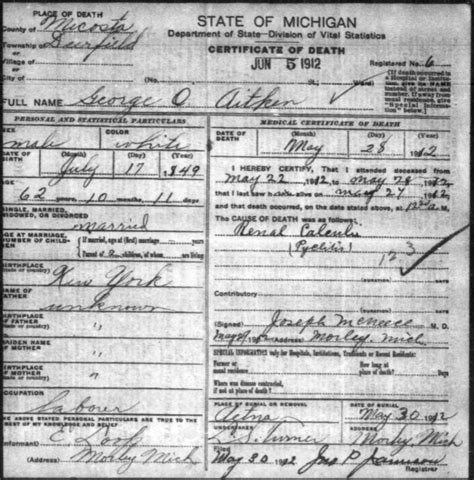 PLACE OF DEATH
County of Mecosta
Township of Deerfield
Village of
City of
STATE OF MICHIGAN
Department of State—Division of Vital Statistics
CERTIFICATE OF DEATH
JUN 5 1912
Registered No. 6
(No. St.; Ward)
FULL NAME George O. Aitken
PERSONAL AND STATISTICAL PARTICULARS
SEX
male
COLOR
white
DATE OF BIRTH
(Month) (Day) (Year)
July 17 1849
AGE
62 years 10 months 11 days
SINGLE, MARRIED, WIDOWED, OR DIVORCED
married
AGE AT MARRIAGE, NUMBER OF CHILDREN
If married, age at (first) marriage years
Parent of children, of whom are living
BIRTHPLACE
New York
NAME OF FATHER
unknown
BIRTHPLACE OF FATHER
"
MAIDEN NAME OF MOTHER
"
BIRTHPLACE OF MOTHER
"
OCCUPATION
Laborer
THE ABOVE STATED PERSONAL PARTICULARS ARE TRUE TO THE BEST OF MY KNOWLEDGE AND BELIEF
(Informant)
(Address) Morley Mich
MEDICAL CERTIFICATE OF DEATH
DATE OF DEATH
(Month) (Day) (Year)
May 28 1912
I HEREBY CERTIFY, That I attended deceased from
May 22 1912 to May 28 1912
that I last saw alive on May 27 1912
and that death occurred, on the date stated above, at
The CAUSE OF DEATH was as follows:
Renal Calculi
(Pyelitis)
123
Contributory
(Signed) Joseph McNeece M. D.
1912 (Address) Morley, Mich
SPECIAL INFORMATION only for Hospitals, Institutions, Transients or Recent Residents
Former or usual residence
How long at place of death? days
Where was disease contracted, if not at place of death?
PLACE OF BURIAL OR REMOVAL
Aetna
DATE OF BURIAL
May 30 1912
UNDERTAKER
L. S. Turner
(Address)
Morley Mich
May 30 1912
Jas P. Jamison
Registrar